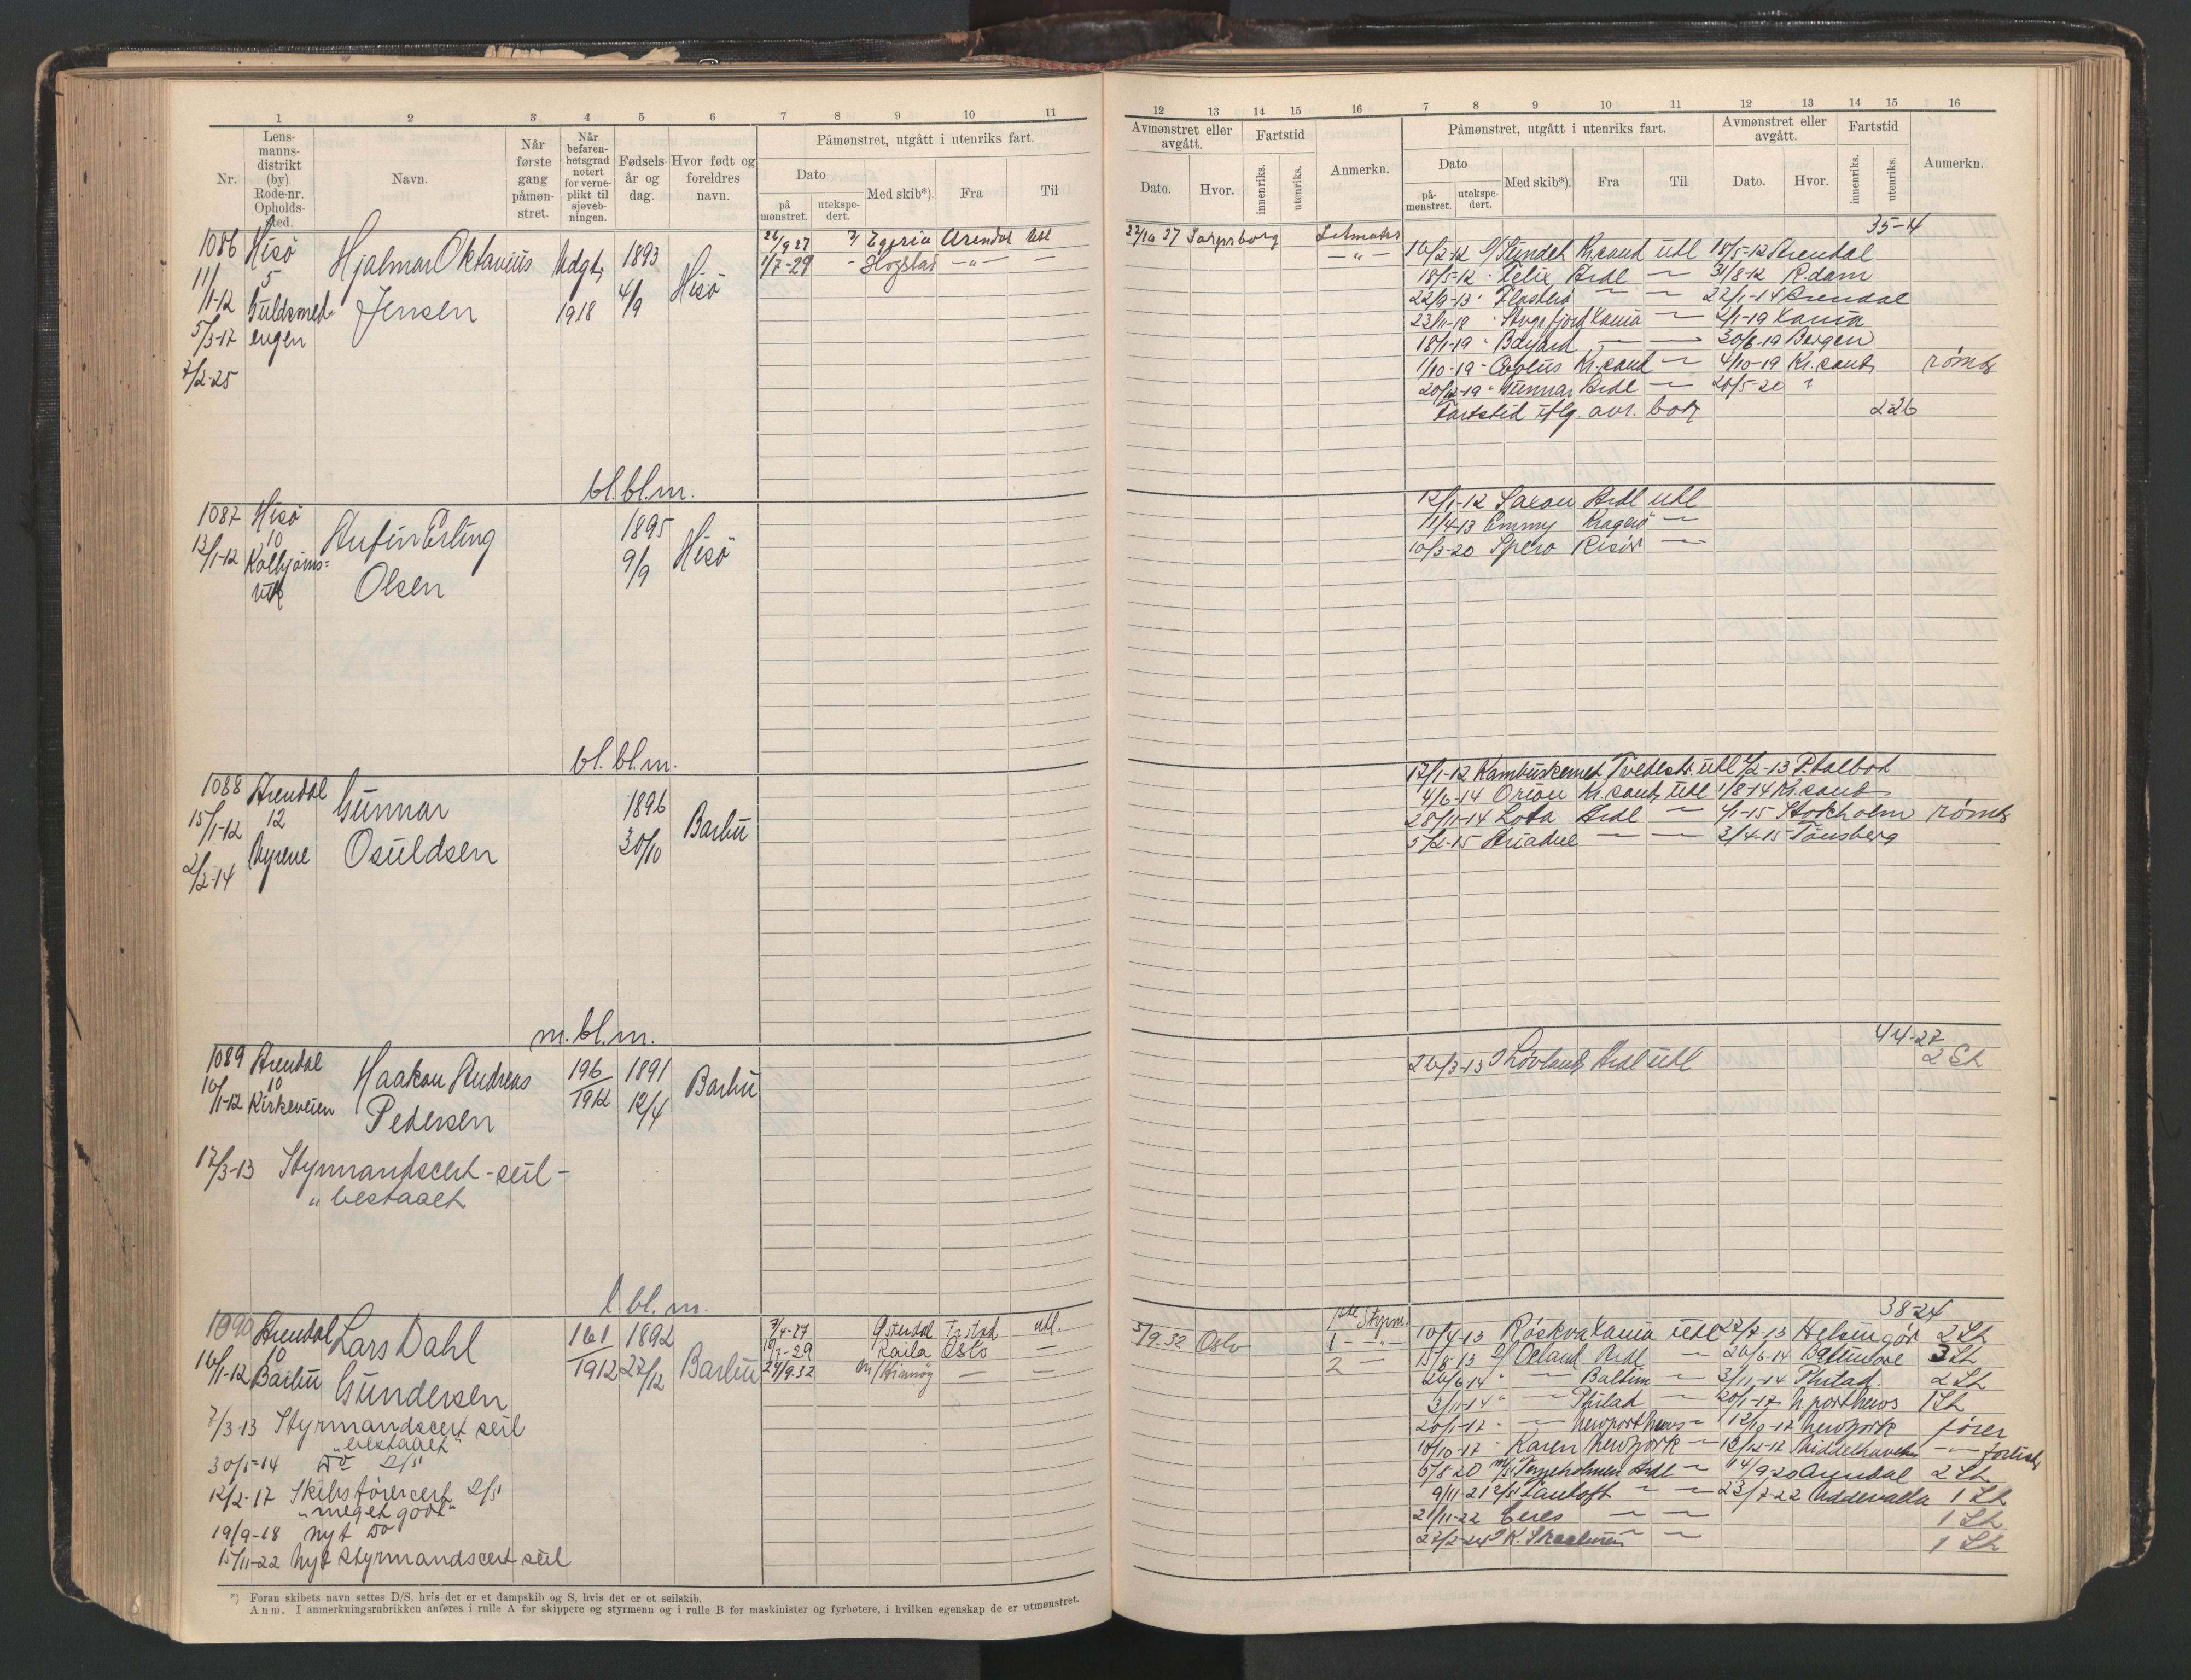 1 2 3 4 5 6 7 8 9 10 11
Nr.
Lens-
manns-
distrikt
(by).
Rode-nr.
Opholds-
sted.
Navn.
Når
første
gang
påmøn-
stret.
Når
befaren-
hetsgrad
notert
for verne-
plikt til
sjøveb-
ningen.
Fødsels-
år og
dag.
Hvor født og
foreldres
navn.
Påmønstret, utgått i utenriks fart.
Dato
på
mønstret.
utekspe-
dert.
Med skib*).
Fra
Til
12 13 14 15 16 7 8 9 10 11 12 13 14 15 16
Avmønstret eller
avgått.
Dato.
Hvor.
Fartstid
innenriks.
utenriks.
Anmerkn.
Påmønstret, utgått i utenriks fart.
Dato
på-
mønstret.
utekspe-
dert.
Med skib*).
Fra
Til
Avmønstret eller
avgått.
Dato.
Hvor.
Fartstid
innenriks.
utenriks.
Anmerkn.
1086 Hisö
11/1-12
5
Guldsmed-
engen
5/3-17
7/2-25
Hjalmar Oktavius
Jensen
Udgt,
1918
1893
4/9
Hisö
26/9 27 Egeria Arendal Utl
1/7-29 - Hogstad -"- —
22/10 27 Sarpsborg
-"-
35-4
16/2-12 Sundet Kr.sand utl 18/5-12 Arendal
18/5-12 - Felix Ardl — 31/8-12 R.dam
22/9-13 - Flosterö — — 22/1-14 Arendal
23/11-18 - Kania — 2/1-19 Kania
18/1-19 - Bayard — — 30/6-19 Bergen
1/10-19 - Kr.sand — 4/10-19 Kr.sand, römt
20/12-19 - Gunnar Ardl — 20/5-20 "
Fartstid iflg. avr. bok 226
bl. bl. m.
1087 Hisö
10
13/1-12 Kolbjörns=
vik
Anfin Erling
Olsen
1895
9/9
Hisö
12/1-12 Saxon Ardl utl
11/4-13 Emmy Kragerö —
10/3-20 Spero Risör —
bl. bl. m.
1088 Arendal
15/1-12 12
Myrene
2/2-14
Gunnar
Osuldsen
1896
30/10
Barbu
17/1-12 Kambuskenet Tvedestr. utl 4/2-13 P.talbot
4/6-14 Orion Kr.sand, utl 1/8-14 Kr.sand
28/11-14 Lota Ardl — 4/1-15 Stokholm römt
5/2-15 Ariadne — — 3/4-15 Tönsberg
m. bl. m.
1089 Arendal
10
16/1-12 Kirkeveien
Haakon Andreas
Pedersen
196
1912
1891
12/4
Barbu
17/3-13 Styrmandscert - seil -
"bestaaet
44-27
26/3-13 Lovland, Ardl utl 2 St
l. bl. m.
1090 Arendal
10
16/1-12 Barbu
Lars Dahl
Gundersen
161
1912
1892
27/12
Barbu
7/4-27 Ystad utl.
18/7-29 Oslo —
24/9.32 M/ Hinnöy — —
5/9.32 Oslo
Styrm.
1 -"-
2 —
7/3-13 Styrmandscert seil
"bestaaet"
30/5-14 Do D/S
12/2-17 Skibsförercert D/S
"meget godt"
19/9-18 nyt Do
15/11-22 Nyt styrmandscert seil
38-24
10/4-13 Röskva Kania utl 27/7-13 Helsingör 2 St
15/8-13 D/ Ocland Ardl — 26/6-14 Baltimore 3 St
26/6-14 " — Baltim — 3/11-14 Philad. 2 St
3/11-14 " — Philad — 20/1-17 N.portnews 1 St
20/1-17 - — Newportnews - 12/10-17 Newyork förer
18/10-17 - Karen Newyork — 13/12-17 Middelhavet -"- forlist,
5/8 20 M/S Ardl — 14/9.20 Arendal 2 St
9/11-21 D/S — — 23/7-22 Uddevalla 1 St
21/11-22 Ceres — — 1 St
27/2-24 K. — — 1 St
*) Foran skibets navn settes D/S, hvis det er et dampskib og S, hvis det er et seilskib.
Anm. I anmerkningsrubrikken anføres i rulle A for skippere og styrmenn og i rulle B for maskinister og fyrbøtere, i hvilken egenskap de er utmønstret.